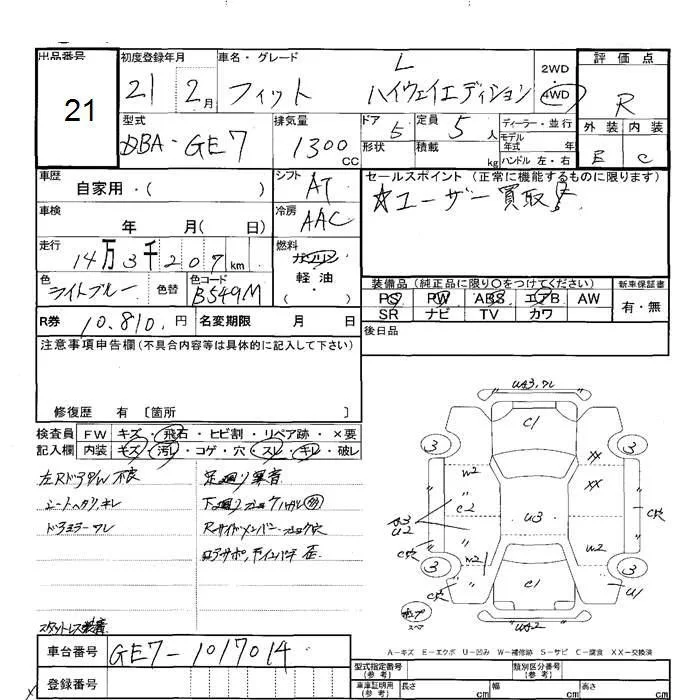 出品番号
21
初度登録年月
21 2月
車名・グレード
フィット
L
ハイウェイエディション
2WD
4WD
評価点
R
外装 内装
E C
型式
DBA-GE7
排気量
1300 CC
ドア
5
定員
5人
形状
積載
kg
ディーラー・並行
モデル年式 年
ハンドル 左・右
車歴
自家用・( )
シフト
AT
セールスポイント (正常に機能するものに限ります)
☆ユーザー買取
車検
年 月( 日)
冷房
AAC
走行
14万3千207km
燃料
ガソリン
軽油
色
ライトブルー
色替
色コード
B549M
装備品 (純正品に限り〇をつけてください)
PS PW ABS エアB AW
SR ナビ TV カワ
新車保証書
有・無
R券
10.810.円
名変期限 月 日
後日品
注意事項申告欄(不具合内容等は具体的に記入して下さい)
修復歴 有 〔箇所
検査員記入欄
FW キズ・飛石・ヒビ割・リペア跡・×要
内装 キズ・汚レ・コゲ・穴・スレ・キレ・破レ
左Rドア P/W 不良
シートヘタリ,キレ
ドアミラーワレ
スタットレス装着
足廻り異音
Rサイドメンバー
UA3,ワレ
C1
3
3
W2
XX
XX
A3
U2
C2
U3
C穴
C穴
W2
W2
3
3
C穴
C1
U1
UA2
スマ
A-キズ E-エクボ U-凹み W-補修跡 S-サビ C-腐食 XX-交換済
車台番号
GE7-1017014
登録番号
型式指定番号(参考)
類別区分番号(参考)
車庫証明用(参考)
長さ cm
幅 cm
高さ cm